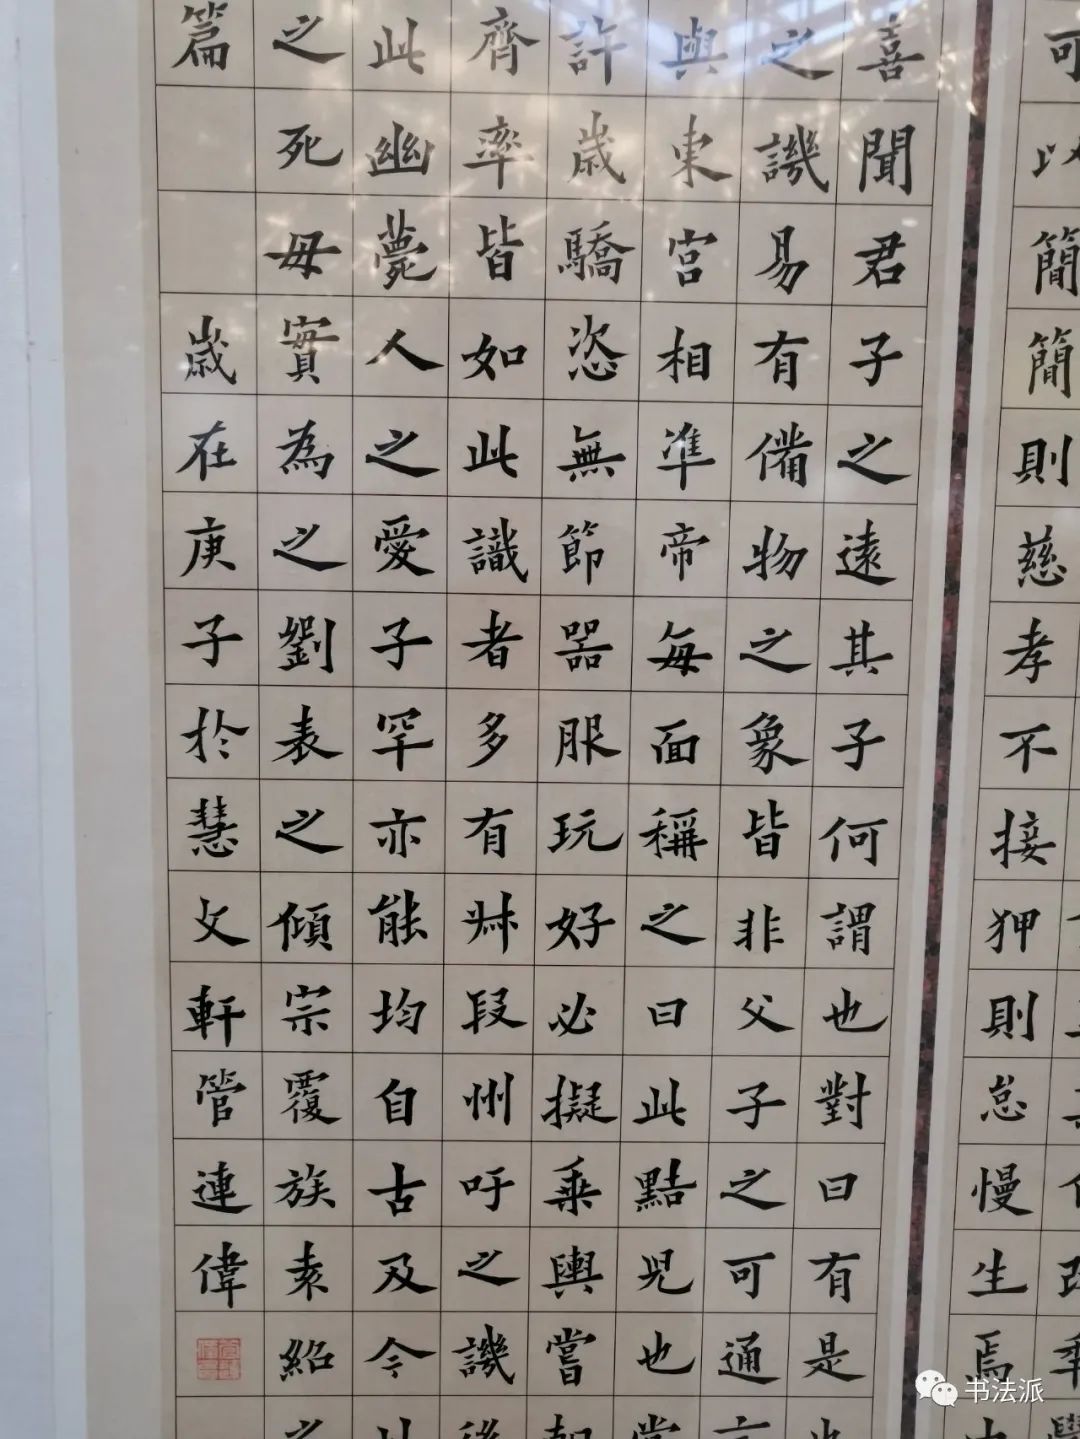 可以簡簡則慈孝不接狎則怠慢生焉
喜聞君子之遠其子何謂也對曰有是
之譏易有備物之象皆非父子之可通
與東宮相凖帝每面稱之曰此黠兒也
許歲驕恣無節器服玩好必擬乘輿嘗
齊率皆如此識者多有叔段州吁之譏
此幽薨人之愛子罕亦能均自古及今
之死母實為之劉表之傾宗覆族袁紹之
篇 歲在庚子於慧文軒管連偉
书法派